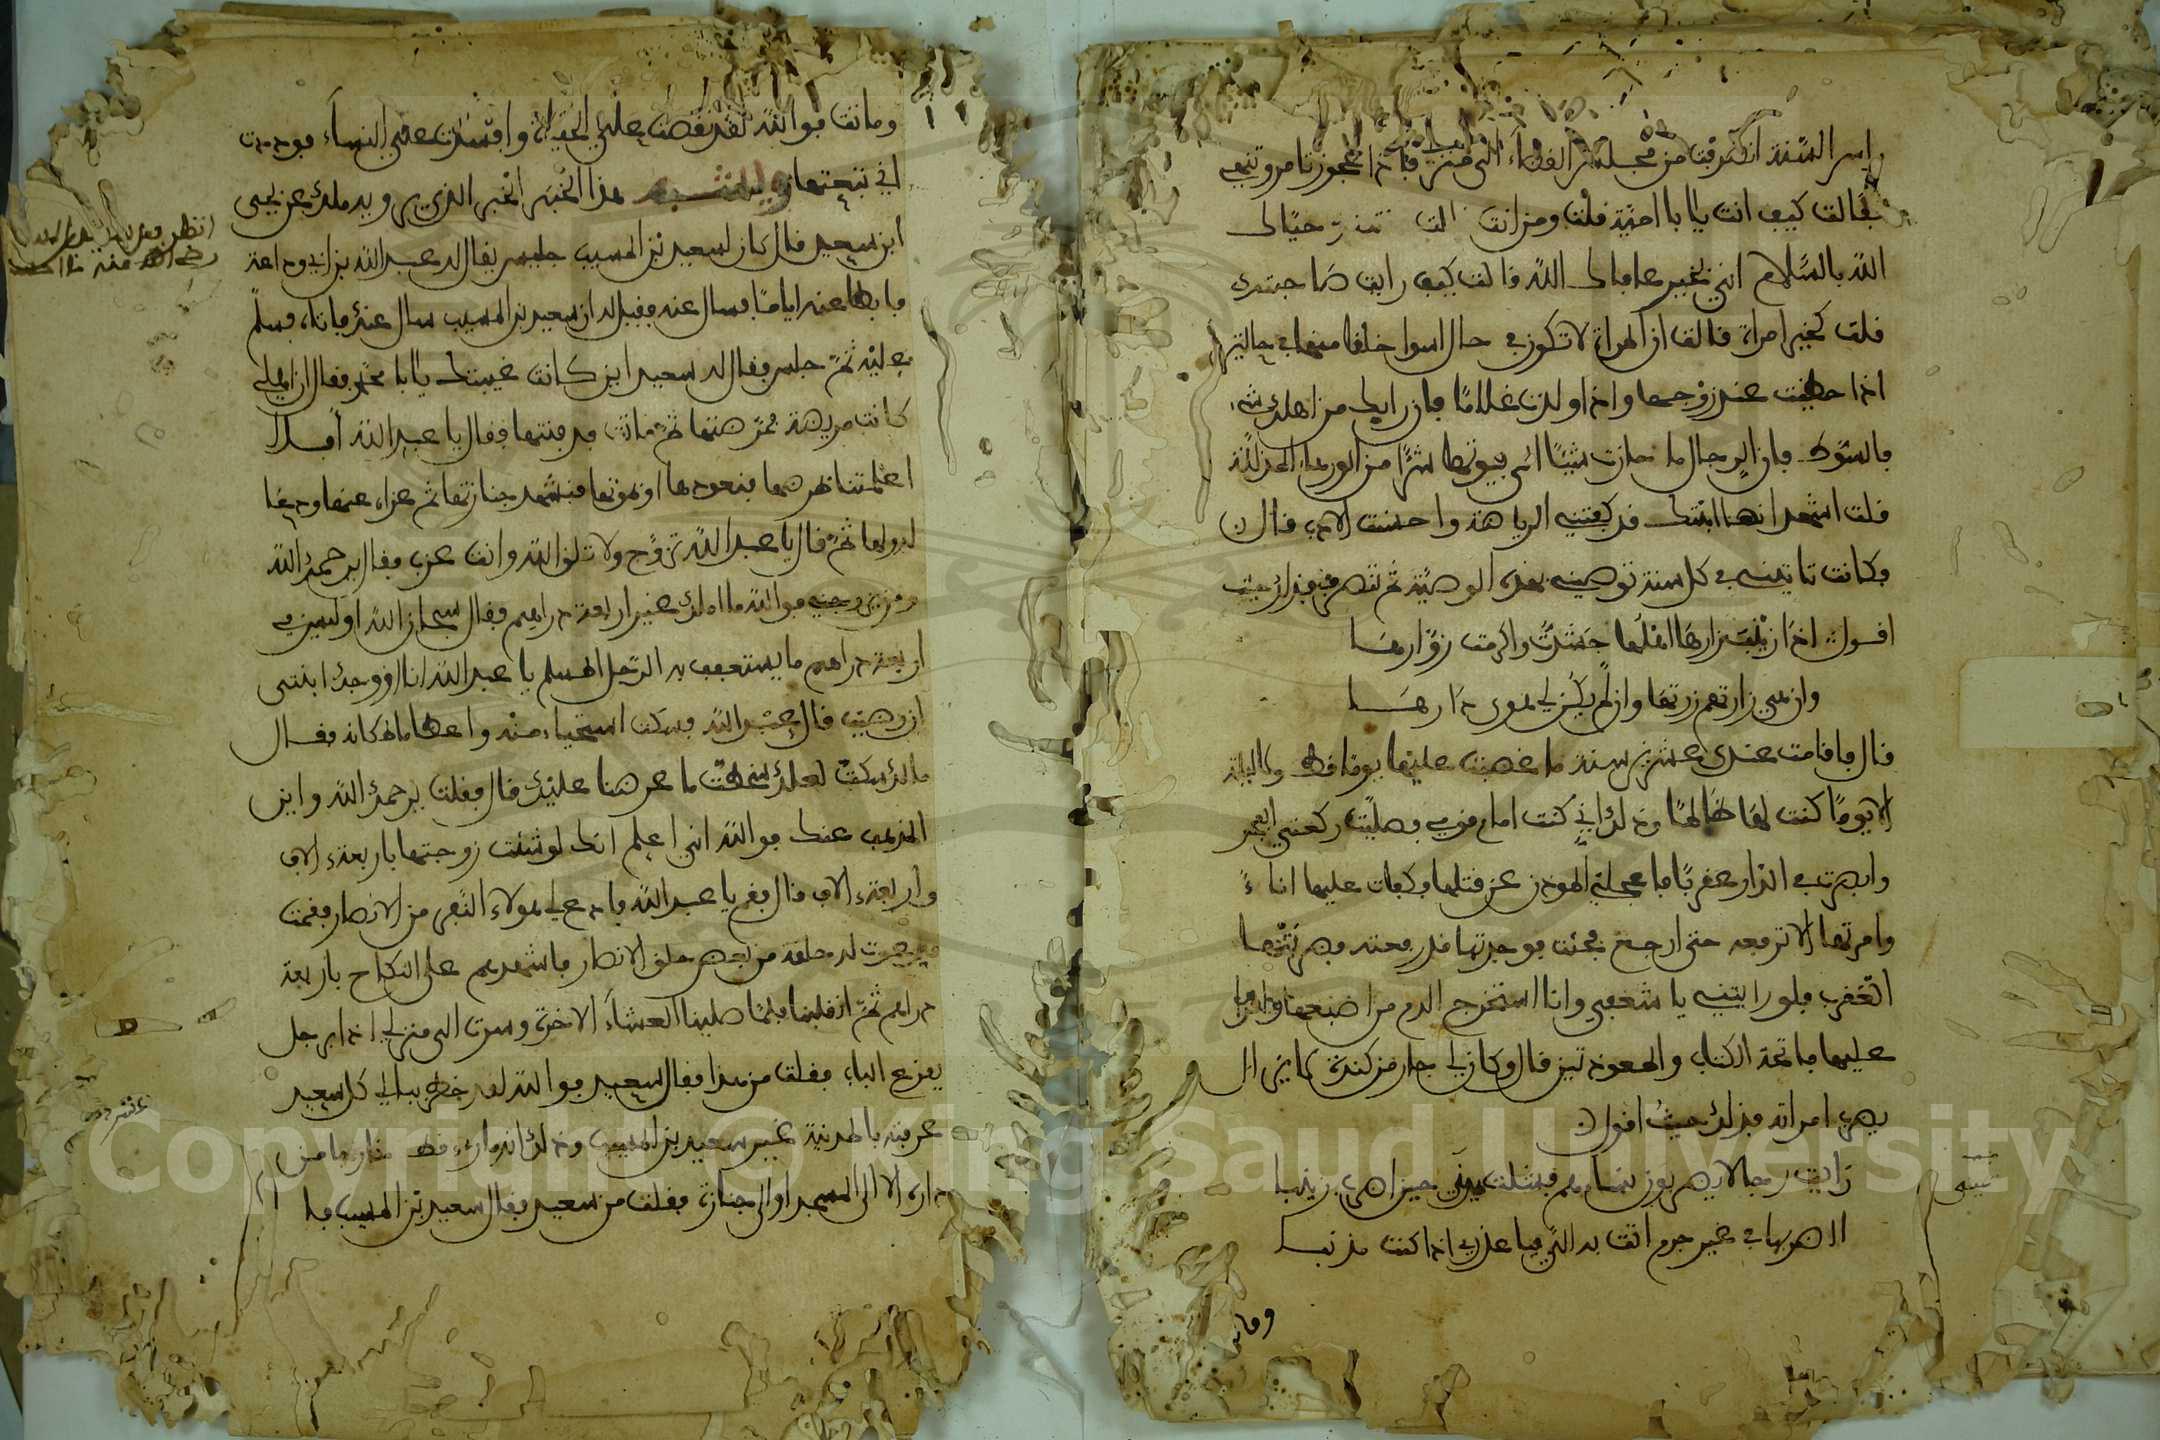 راس السنة انصرفت من مجلس القضاء الى منزلي فاذا عجوز تامر وتنهى
فقالت كيف انت يا ابا امية قلت ومن انت قالت ختنتك حياك
الله بالسلام اني بخير عافاك الله قالت كيف رايت صاحبتك
قلت كخير امراة قالت ان المراة لا تكون في حال اسوا خلقا منها في حالتين
اذا حظيت عند زوجها واذا ولدت غلاما فان رابك من اهلك شيء
فالسوط فان الرجال ما حازت شيئا الى بيوتها شرا من الورهاء المدللة
قلت اشهد انها ابنتك قد كفيتني الرياضة واحسنت الادب قال
وكانت تاتيني في كل سنة توصيني بهذه الوصية ثم تنصرف فبذلك حيث
اقول اذا زينب زارها اهلها حشدت واكرمت زوارها
وان هي زارتهم زرتها وان لم يكن لي هوى دارها
قال فاقامت عندي عشرين سنة ما غضبت عليها يوما قط ولا ليلة
الا يوما كنت لها ظالما وذلك اني كنت امام قومي فصليت ركعتي الفجر
وابصرت في الدار عقربا فاعجلني الموذن عن قتلها وكفات عليها اناءً
وامرتها الا ترفعه حتى ارجع فجئت فوجدتها قد رفعته فضربتها
العقرب فلو رايتني يا شعبي وانا استخرج الدم من اصبعها واقرا
عليها فاتحة الكتاب والمعوذتين قال وكان لي جار من كندة لا يزال
يضرب امراته فبذلك حيث اقول
رايت رجالا يضربون نساءهم فشلت يميني حين اضرب زينبا
ااضربها في غير جرم اتت به الي فما عذري اذا كنت مذنبا
وما
وماتت فوالله لقد نغصت علي الحياة وافسدت علي النساء فوددت
اني تبعتها ويشبه هذا الخبر الخبر الذي يرويه ملك عن يحيى
ابن سعيد قال كان لسعيد بن المسيب جليس يقال له عبد الله بن ابي وداعة
فابطا عنه اياما فسال عنه فقيل له ان سعيد بن المسيب سال عنك فاتاه فسلم
عليه ثم جلس فقال له سعيد اين كانت غيبتك يا ابا محمد فقال ان اهلي
كانت مريضة فمرضتها ثم ماتت فدفنتها فقال يا عبد الله افلا
اعلمتنا بمرضها فنعودها او بموتها فنشهد جنازتها ثم عزاه عنها ودعا
له ولها ثم قال يا عبد الله تزوج ولا تلق الله وانت عزب فقال يرحمك الله
ومن يزوجني فوالله ما املك غير اربعة دراهم فقال سبحان الله اوليس في
اربعة دراهم ما يستعفف به الرجل المسلم يا عبد الله انا ازوجك ابنتي
ان رضيت قال عبد الله فسكت استحياء منه واعظاما لمكانه فقال
مالك سكت لعلك سخطت ما عرضنا عليك قال فقلت يرحمك الله واين
المذهب عنك فوالله اني اعلم انك لو شئت زوجتها باربعة الاف
واربعة الاف قال فقم يا عبد الله فادع لي هولاء النفر من الانصار فقمت
فدعوت له حلقة من بعض حلق الانصار فاشهدهم على النكاح باربعة
دراهم ثم انقلبنا فلما صلينا العشاء الاخرة وسرت الى منزلي اذا برجل
يقرع الباب فقلت من هذا فقال سعيد فوالله لقد خطر ببالي كل سعيد
عرفته بالمدينة غير سعيد بن المسيب وذلك انه ما رءي قط خارجا من
داره الا الى المسجد او الى جنازة فقلت من سعيد فقال سعيد بن المسيب
Copyright © King Saud University